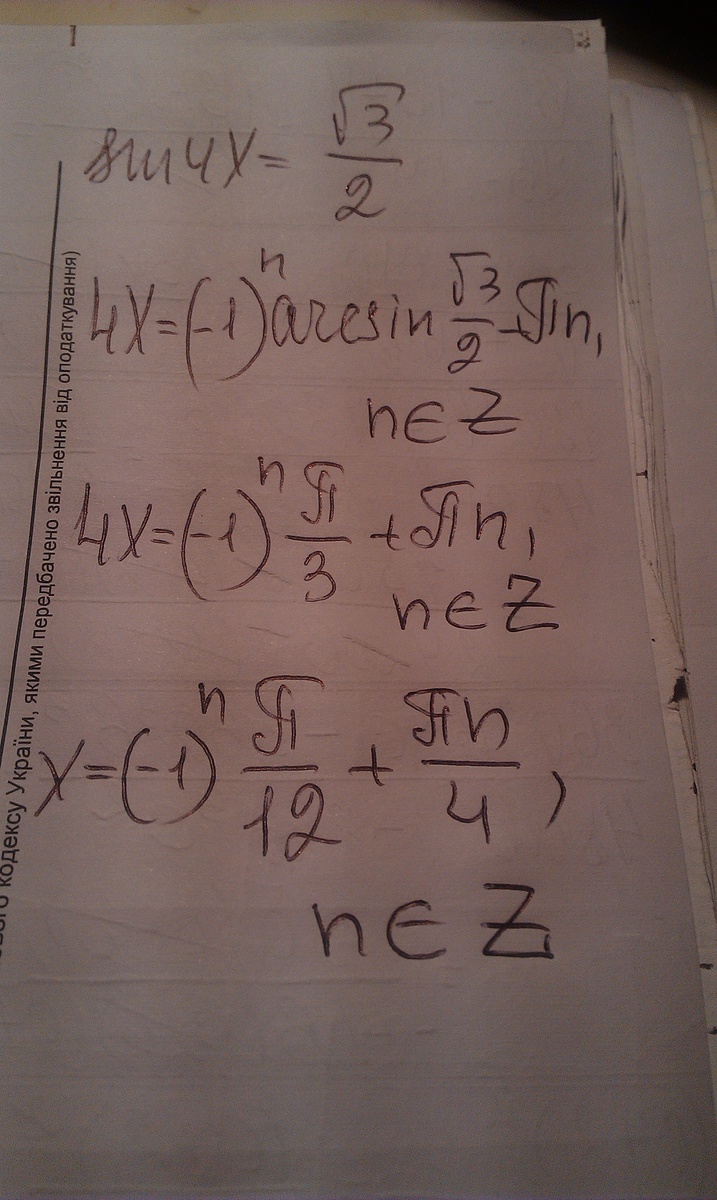 sin4x = √3/2
4x = (-1)ⁿ arcsin √3/2 + πn,
n ∈ Z
4x = (-1)ⁿ π/3 + πn,
n ∈ Z
x = (-1)ⁿ π/12 + πn/4,
n ∈ Z
кодексу України, якими передбачено звільнення від оподаткування)